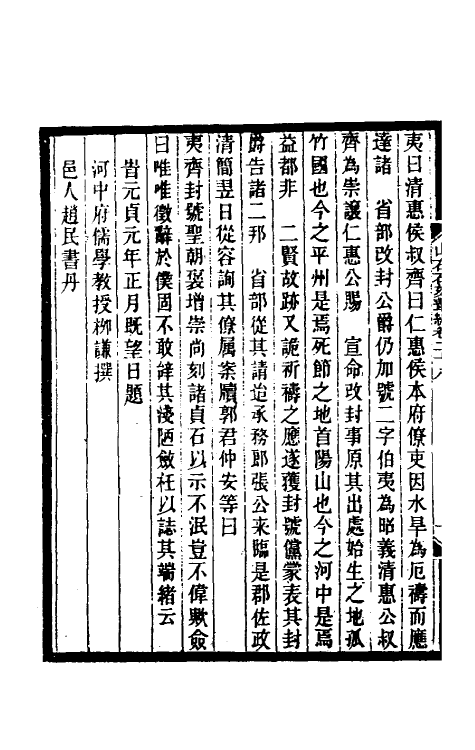 夷曰清惠侯叔齊曰仁惠侯本府僚吏因水旱為厄禱而應
達諸　省部改封公爵仍加號二字伯夷為昭義清惠公叔
齊為崇讓仁惠公賜　宣命改封事原其出處始生之地孤
竹國也今之平州是焉死節之地首陽山也今之河中是焉
益都非　二賢故跡又詭祈禱之應遂獲封號儻蒙表其封
爵告諸二邦　省部從其請迨承務郎張公来臨是郡佐政
清簡翌日從容詢其僚属案牘郭君仲安等曰
夷齊封號聖朝褒增崇尚刻諸貞石以示不泯豈不偉歟僉
曰唯唯徵辭於僕固不敢辞其淺陋斂衽以誌其端緒云
旹元貞元年正月既望日題
河中府儒學教授柳謙撰
邑人趙民書丹